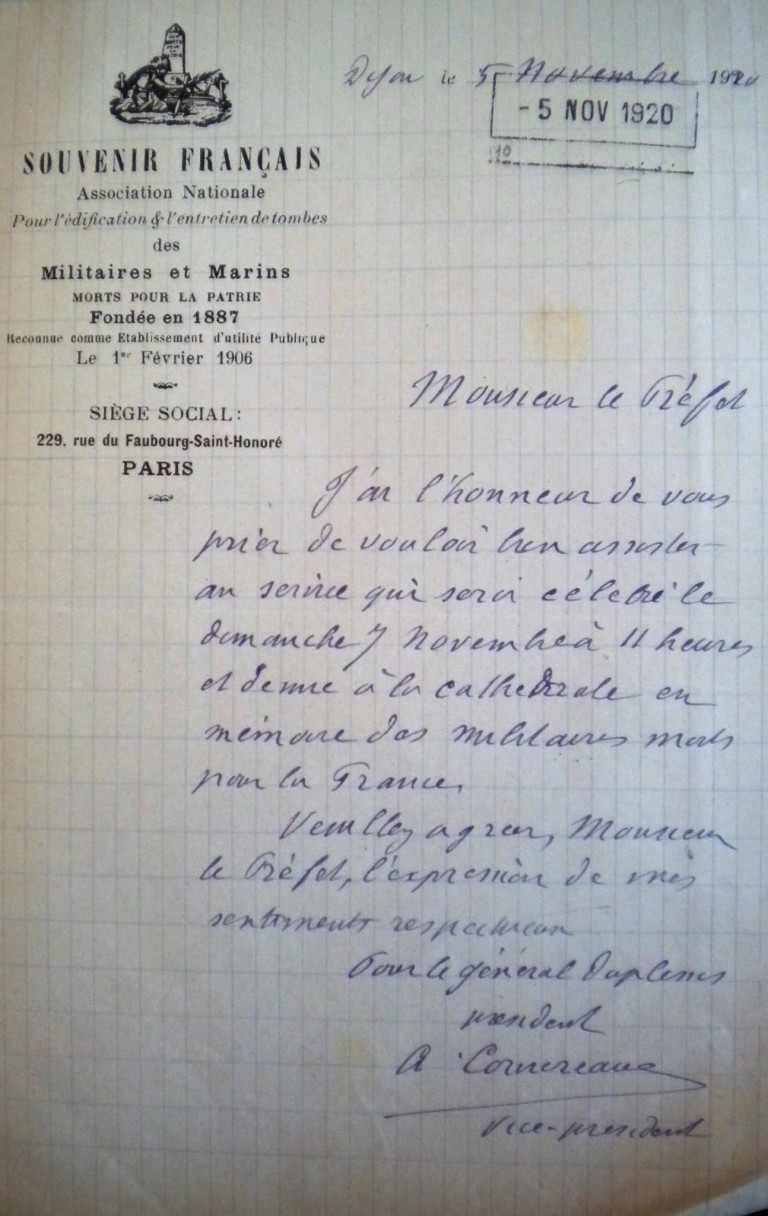 Dijon le 5 Novembre 1920
- 5 NOV 1920
SOUVENIR FRANÇAIS
Association Nationale
Pour l'édification & l'entretien de tombes
des
Militaires et Marins
MORTS POUR LA PATRIE
Fondée en 1887
Reconnue comme Etablissement d'utilité Publique
Le 1er Février 1906
SIÈGE SOCIAL:
229, rue du Faubourg-Saint-Honoré
PARIS
Monsieur le Préfet
J'ai l'honneur de vous
prier de vouloir bien assister
au service qui sera célébré le
dimanche 7 Novembre à 11 heures
et demie à la cathédrale en
mémoire des militaires morts
pour la France.
Veuillez agréer, Monsieur
le Préfet, l'expression de mes
sentiments respectueux
Pour le général Duplessis
président
A Cornereaux
vice-président